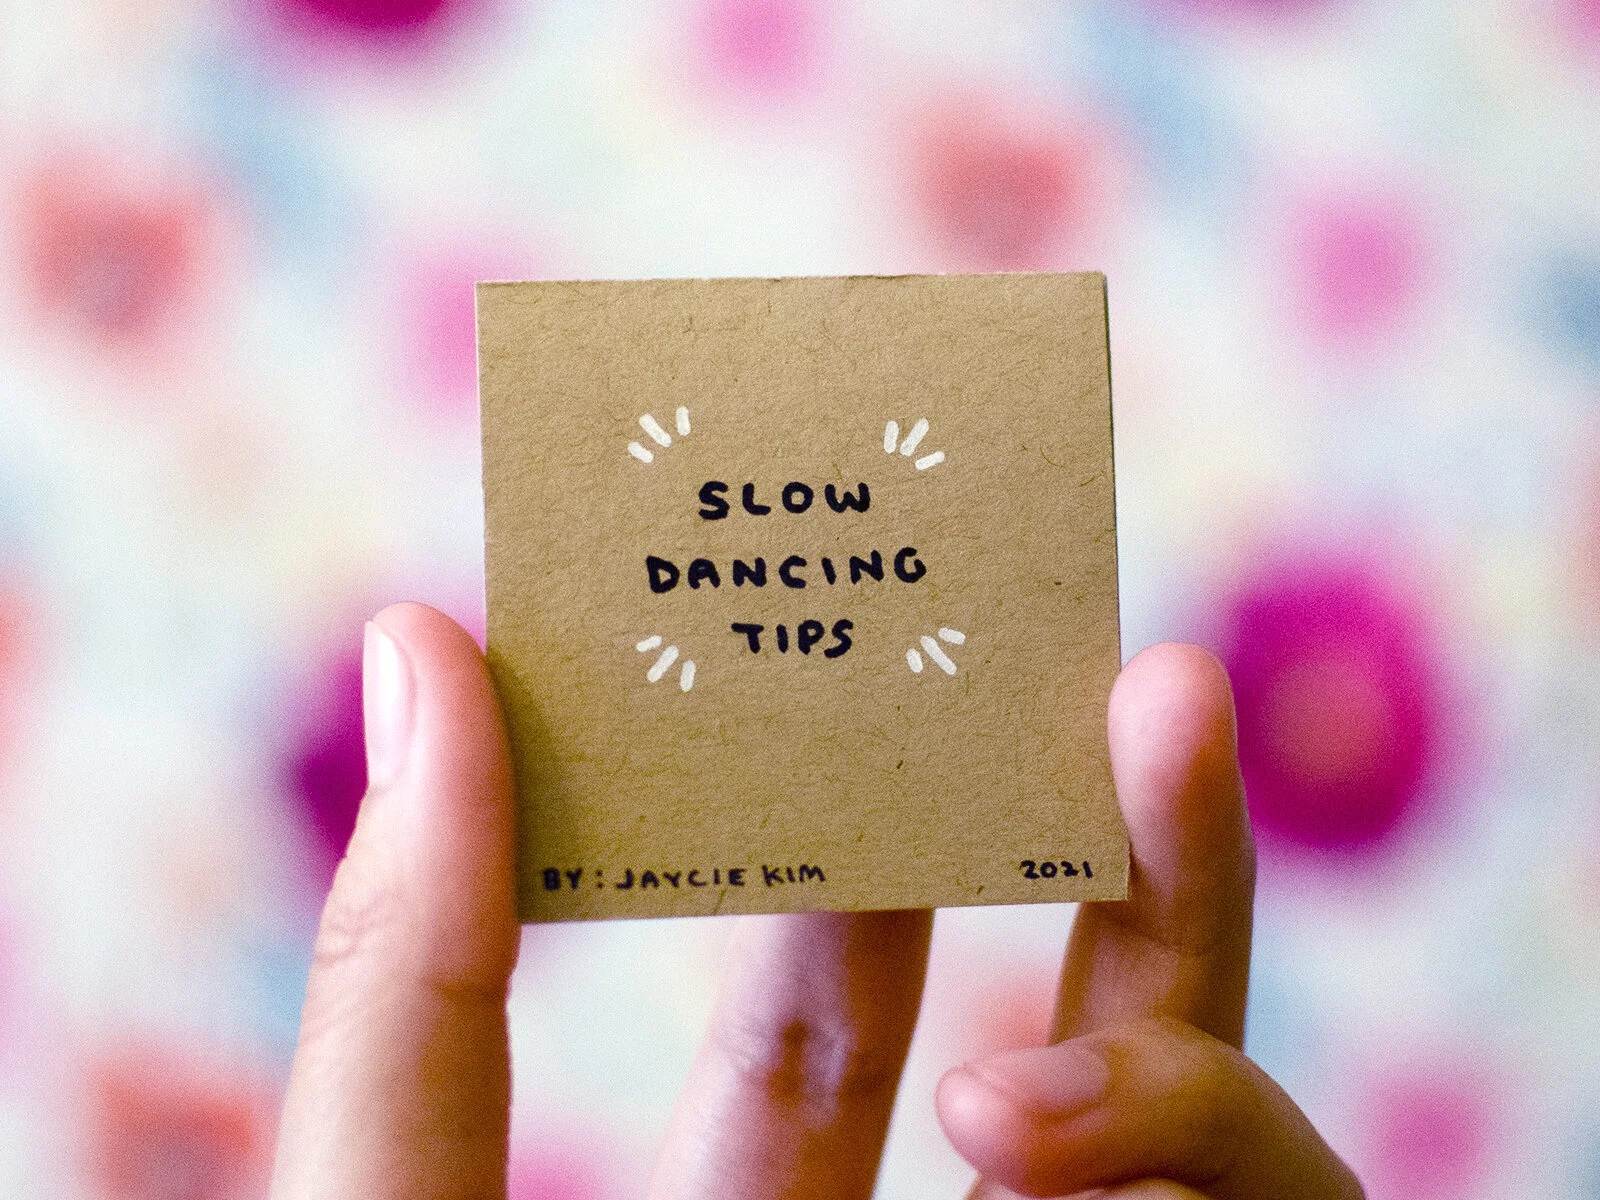 SLOW
DANCING
TIPS
BY: JAYCIE KIM
2021